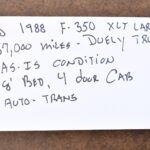 1988 F-350 XLT LAR
37,000 miles - DUELY TRU
AS-IS CONDITION
8' BED, 4 door CAB
AUTO-TRANS